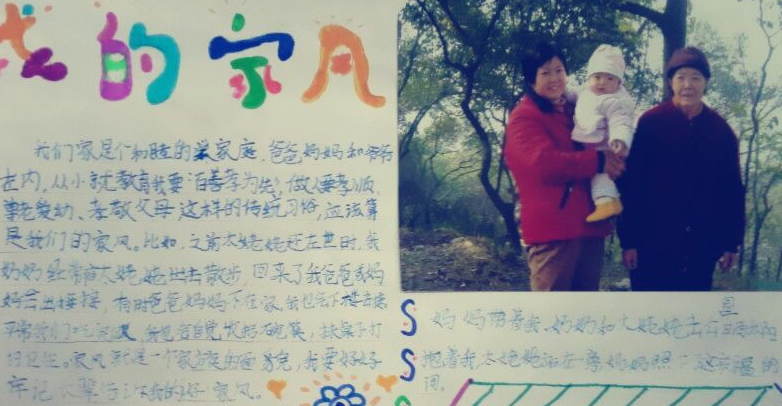 我的家风
我们家是个和睦的家庭,爸爸妈妈和爷爷
在内,从小就教育我要“百善孝为先”,做人要孝顺,
尊老爱幼、孝敬父母这样的传统习俗,应该算
是我们的家风。比如,之前太姥姥还在世时,我
奶奶经常陪太姥姥出去散步,回来了我爸爸或妈
妈会出接,有时爸爸妈妈不在家,我也会下楼去
平常我们吃完饭,我也会自觉收拾碗筷,抹桌子打
扫卫生。家风就是一个家族的,我要好好
牢记的好家风。
妈妈带着我、奶奶和太姥姥去公晒太阳
抱着我,太姥姥站在一旁,妈妈照下这温的